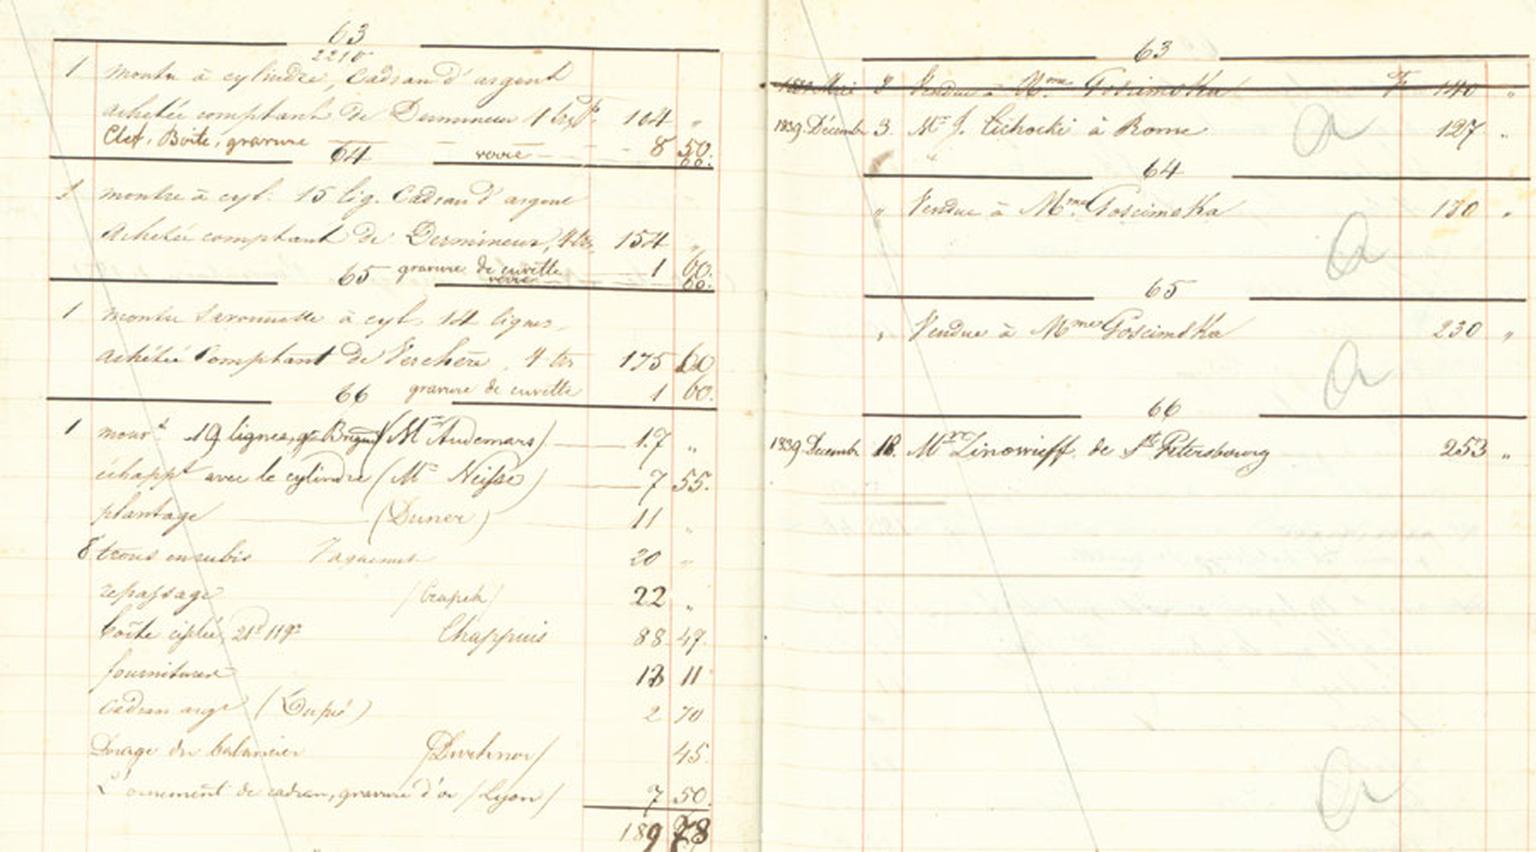 63
2210
1 montre à cylindre, Cadran d'argent
achetée comptant de Dermineur 4 trs 104 "
Clef, Boite, gravure 8 50.
64
verre 60.
1 montre à cyl. 15 lig. Cadran d'argent
Achetée comptant de Dermineur, 4 trs, 154 "
gravure de cuvette 1 60.
65
verre 60.
1 montre Savonnette à cyl. 14 lignes.
achétée Comptant de Verchère. 4 trs 175 60
gravure de cuvette 1 60.
66
1 mouvt 19 lignes, (Mr Audemars) 17 "
échappt avec le cylindre (Mr Neisse) 7 55.
plantage (Duner) 11 "
8 trous en rubis Jaquemot 20 "
repassage (Czapek) 22 "
boîte 119 Chappuis 88 47.
fournitures 11
Cadran argt (Dupré) 2 70
Dorage du balancier 45.
L'ornement de cadran, gravure d'or (Lyon) 7 50.
189 78
63
Mai 3 Vendue à Mme Goscimska F 140 "
1839 Décembre 3. Mr J. Cichocki à Rome 127 "
"
64
" Vendue à Mme Goscimska 170 "
65
" Vendue à Mme Goscimska 230 "
66
1839 Décembre 18. Mr Zinowieff. de St Pétersbourg 253 "
a
a
a
a